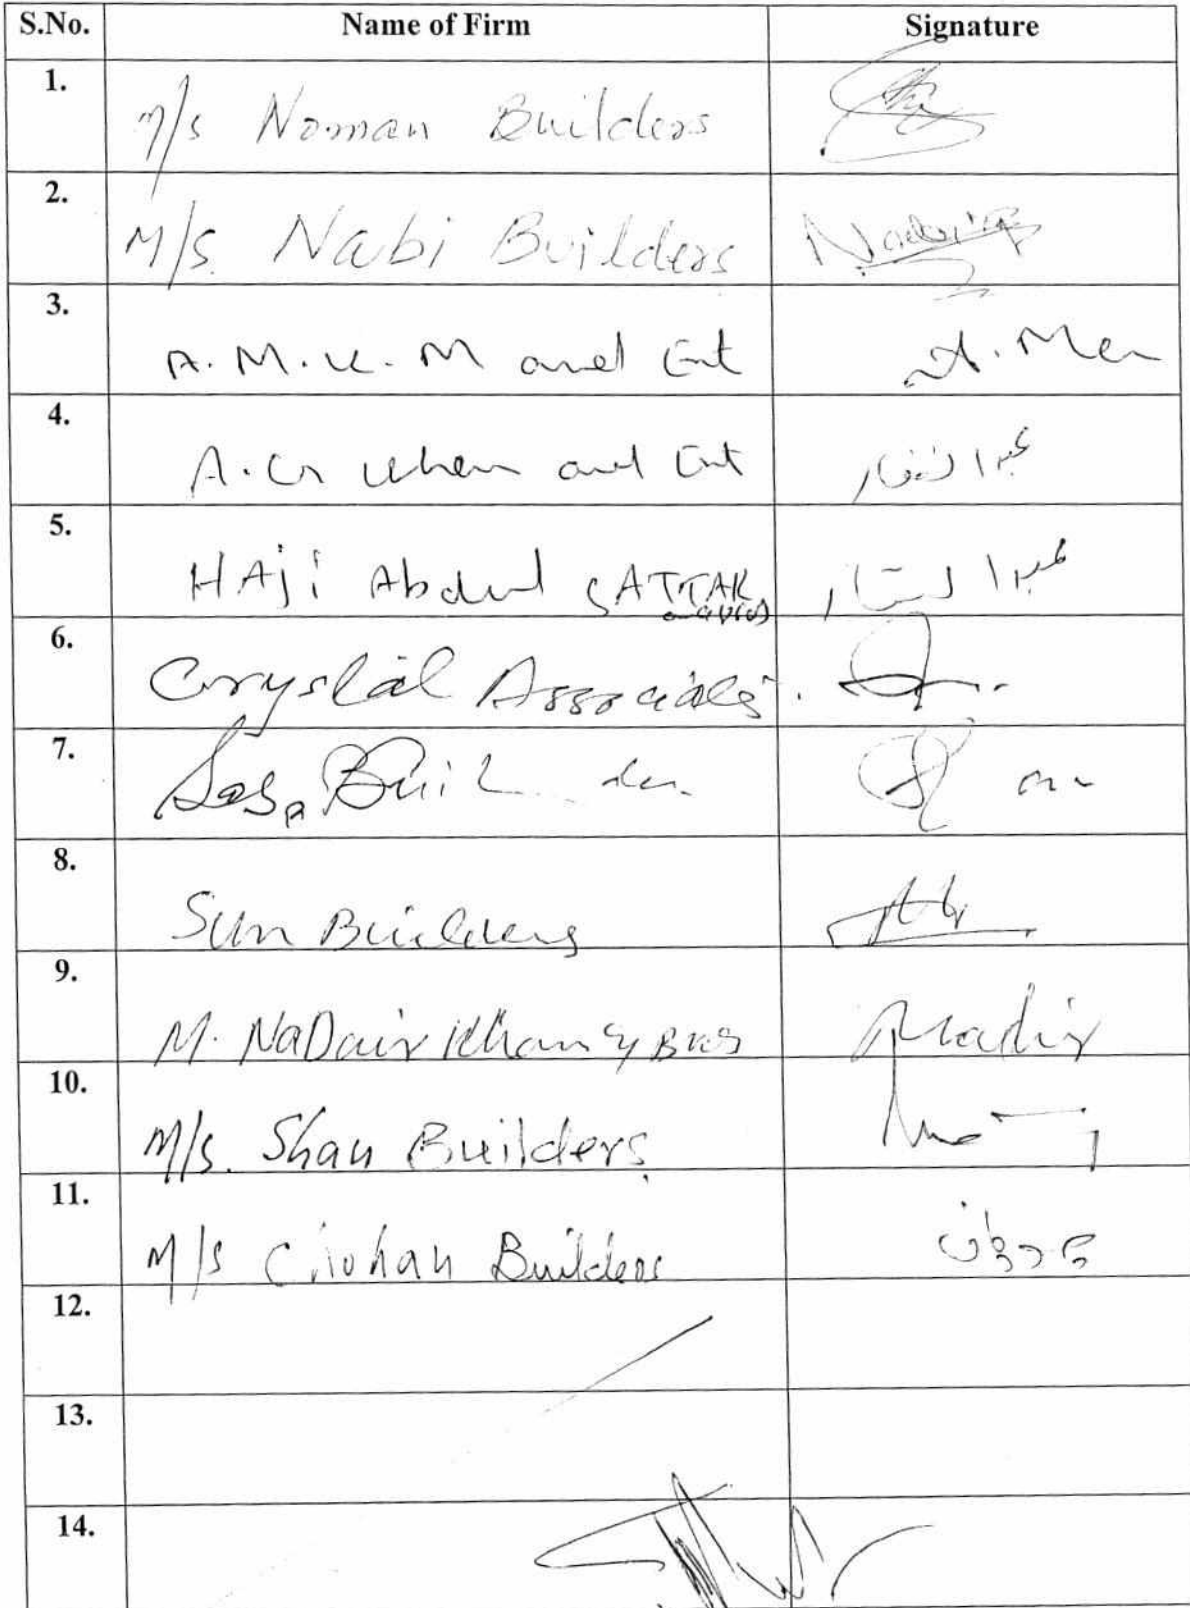 S.No. Name of Firm Signature
1. M/s Noman Builders
2. M/s. Nabi Builders
3. A.M.K.M and Ent A.Man
4. A.G Khan and Ent عبدالغفار
5. HAji Abdul SATTAR عبدالستار
6. Crystal Associates.
7. Buil
8. Sun Builders
9. M. NaDair Khan & Bros Nadir
10. M/s. Shan Builders
11. M/s Chohan Builders چوہان
12.
13.
14.